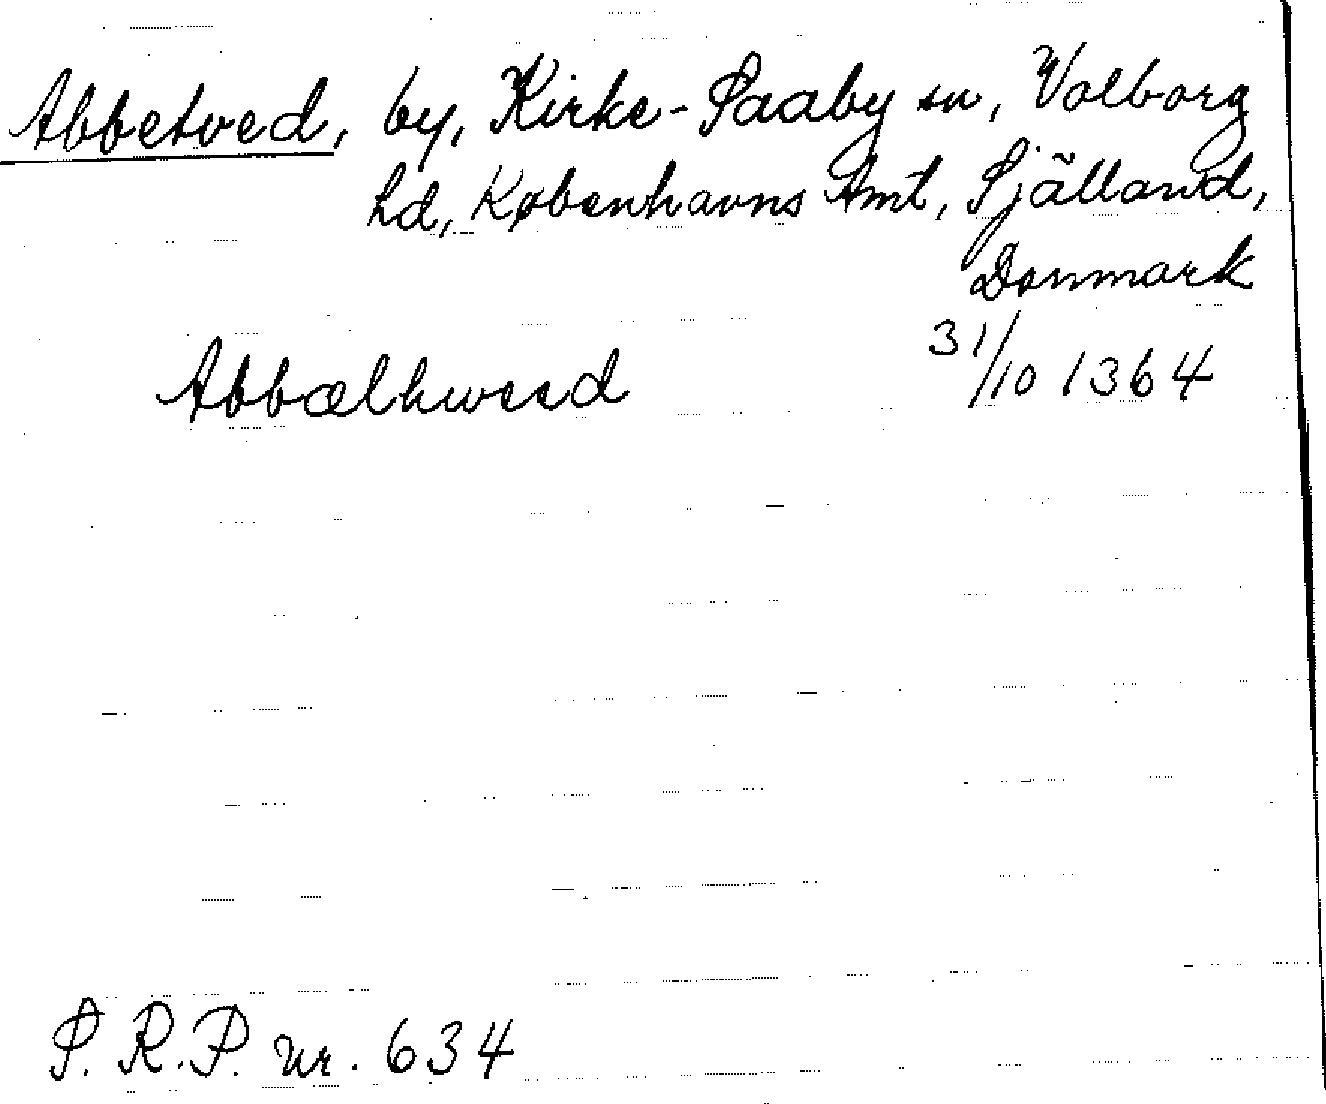 Abbetved, by, Kirke-Saaby sn, Volborg
hd, Københavns Amt, Själland,
Danmark
Abbælhweed 31/10 1364
S.R.P. nr. 634